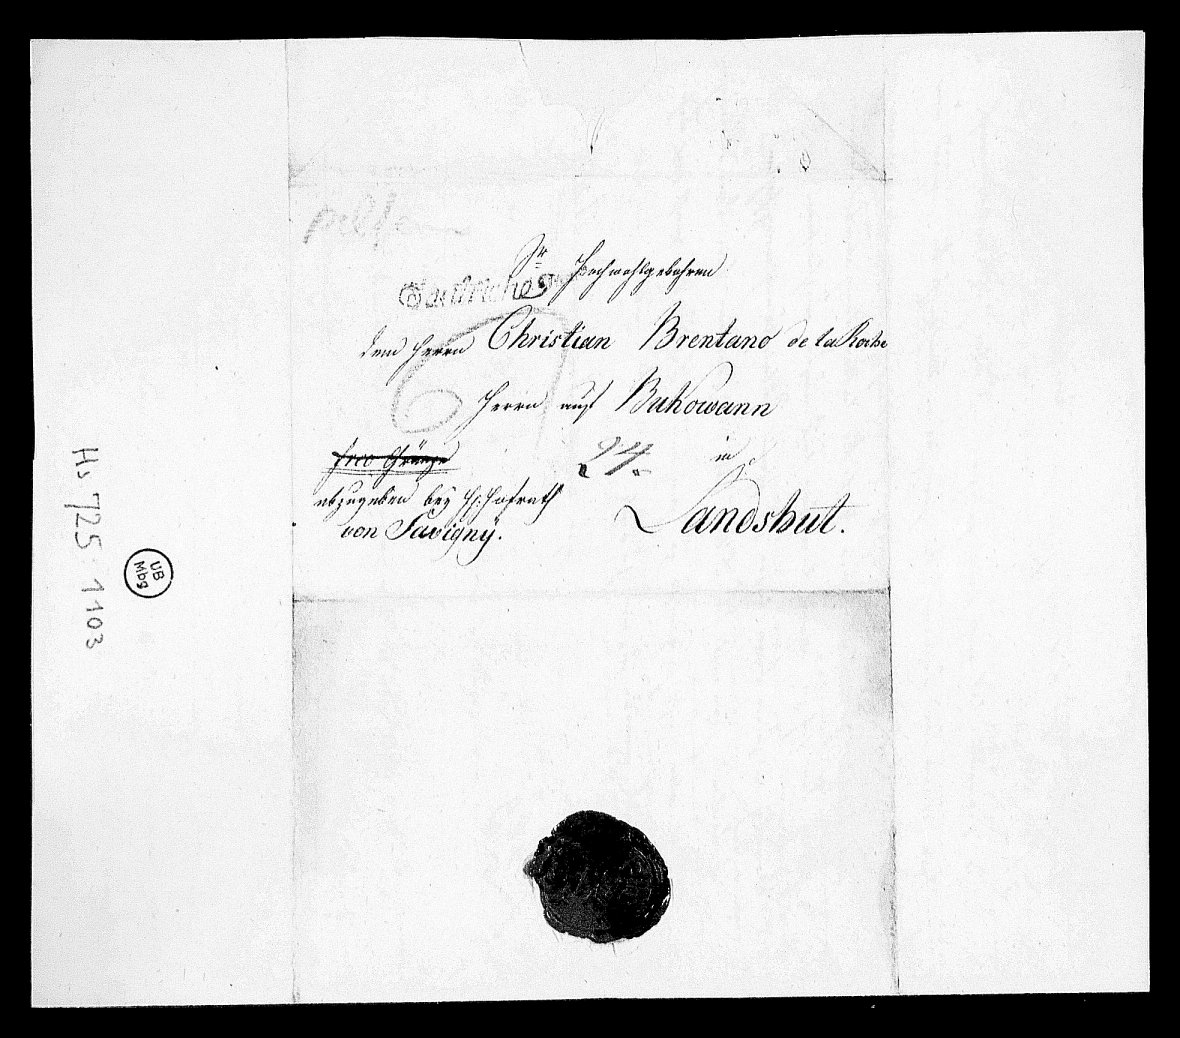 Sr Hochwohlgebohren
dem Herrn Christian Brentano de la Roche
Herrn auf Bukowann
24
in
frco Gränze
abzugeben bey H: Hofrath
von Savigny.
Landshut.
Hs 725:1103
UB
Mbg